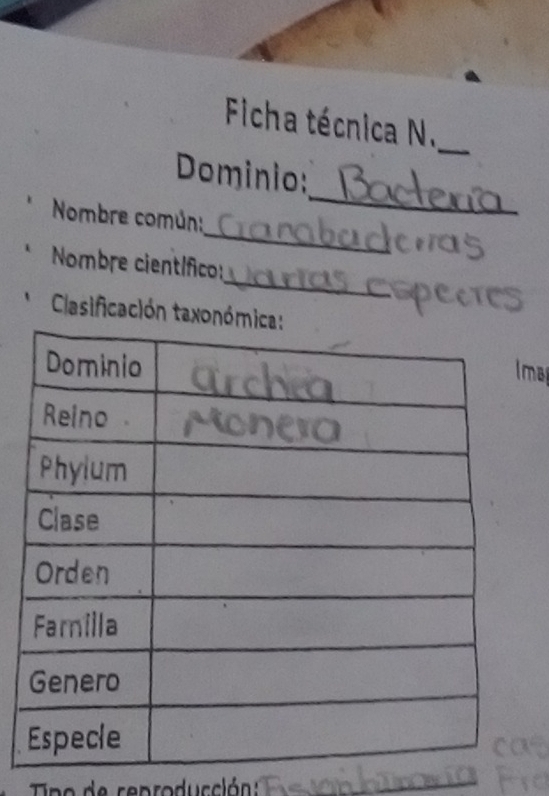 Ficha técnica N.__
Dominio: Bacteria
Nombre común: Cianobacterias
Nombre científico: Varias especies
Clasificación taxonómica:
Dominio archea
Reino Monera
Phylum
Clase
Orden
Familia
Genero
Especie
Tipo de reproducción: Fision binaria